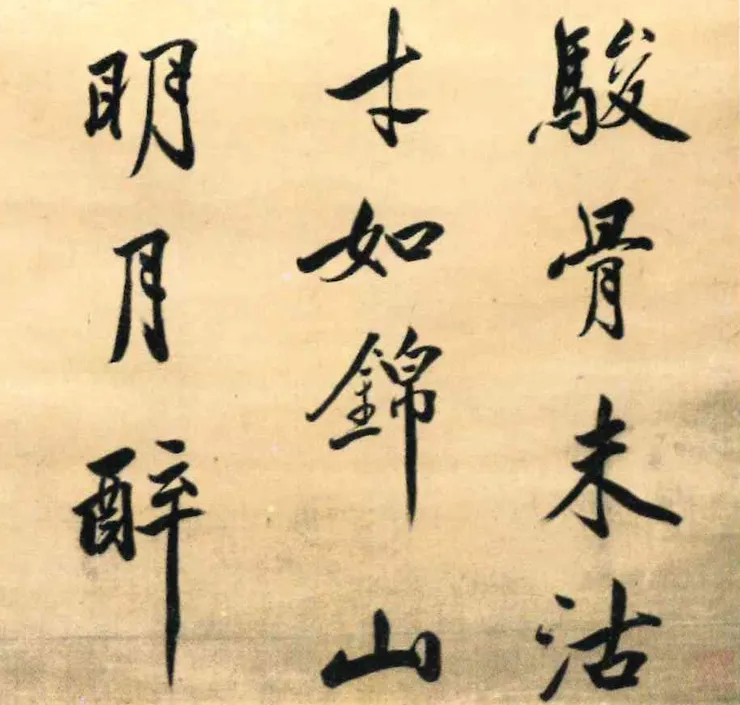 駿骨未沽
才如錦山
明月醉